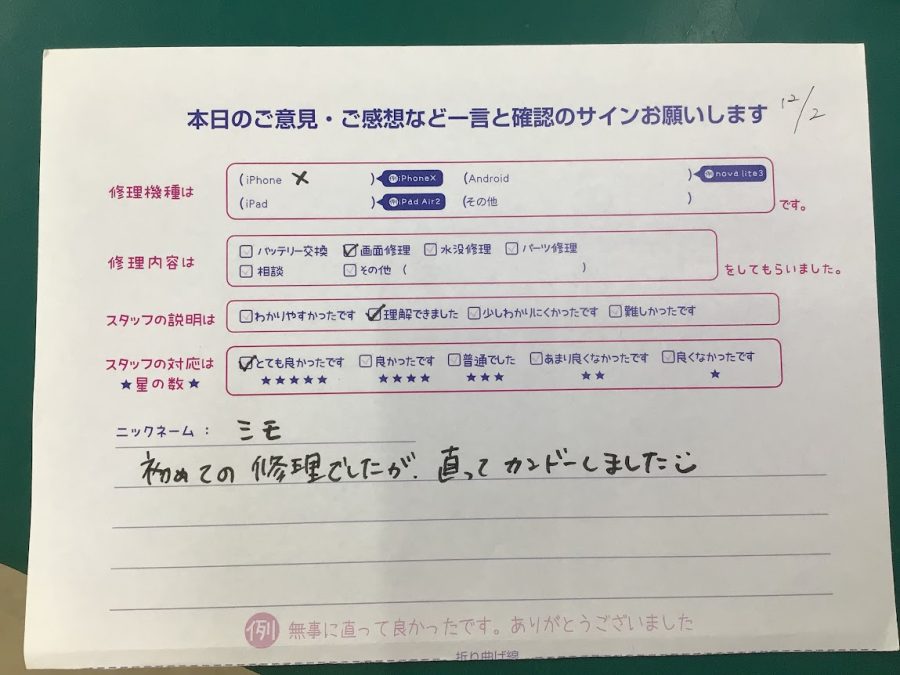 本日のご意見・ご感想など一言と確認のサインお願いします 12/2
修理機種は (iPhone X ) iPhoneX (Android ) nova lite3
(iPad ) iPad Air2 (その他 ) です。
修理内容は バッテリー交換 画面修理 水没修理 パーツ修理
相談 その他 ( ) をしてもらいました。
スタッフの説明は わかりやすかったです 理解できました 少しわかりにくかったです 難しかったです
スタッフの対応は とても良かったです 良かったです 普通でした あまり良くなかったです 良くなかったです
★星の数★ ★★★★★ ★★★★ ★★★ ★★ ★
ニックネーム： ミモ
初めての修理でしたが、直ってカンドーしました
例 無事に直って良かったです。ありがとうございました
折り曲げ線